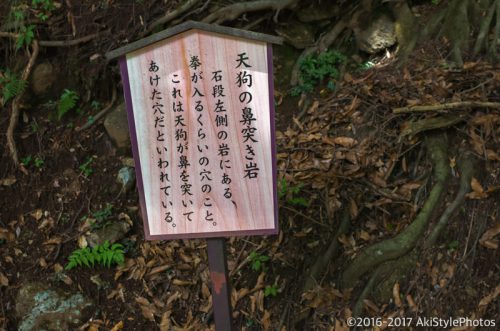 天狗の鼻突き岩
石段左側の岩にある、
拳が入るくらいの穴のこと。
これは天狗が鼻を突いて
あけた穴だといわれている。
©2016-2017 AkiStylePhotos